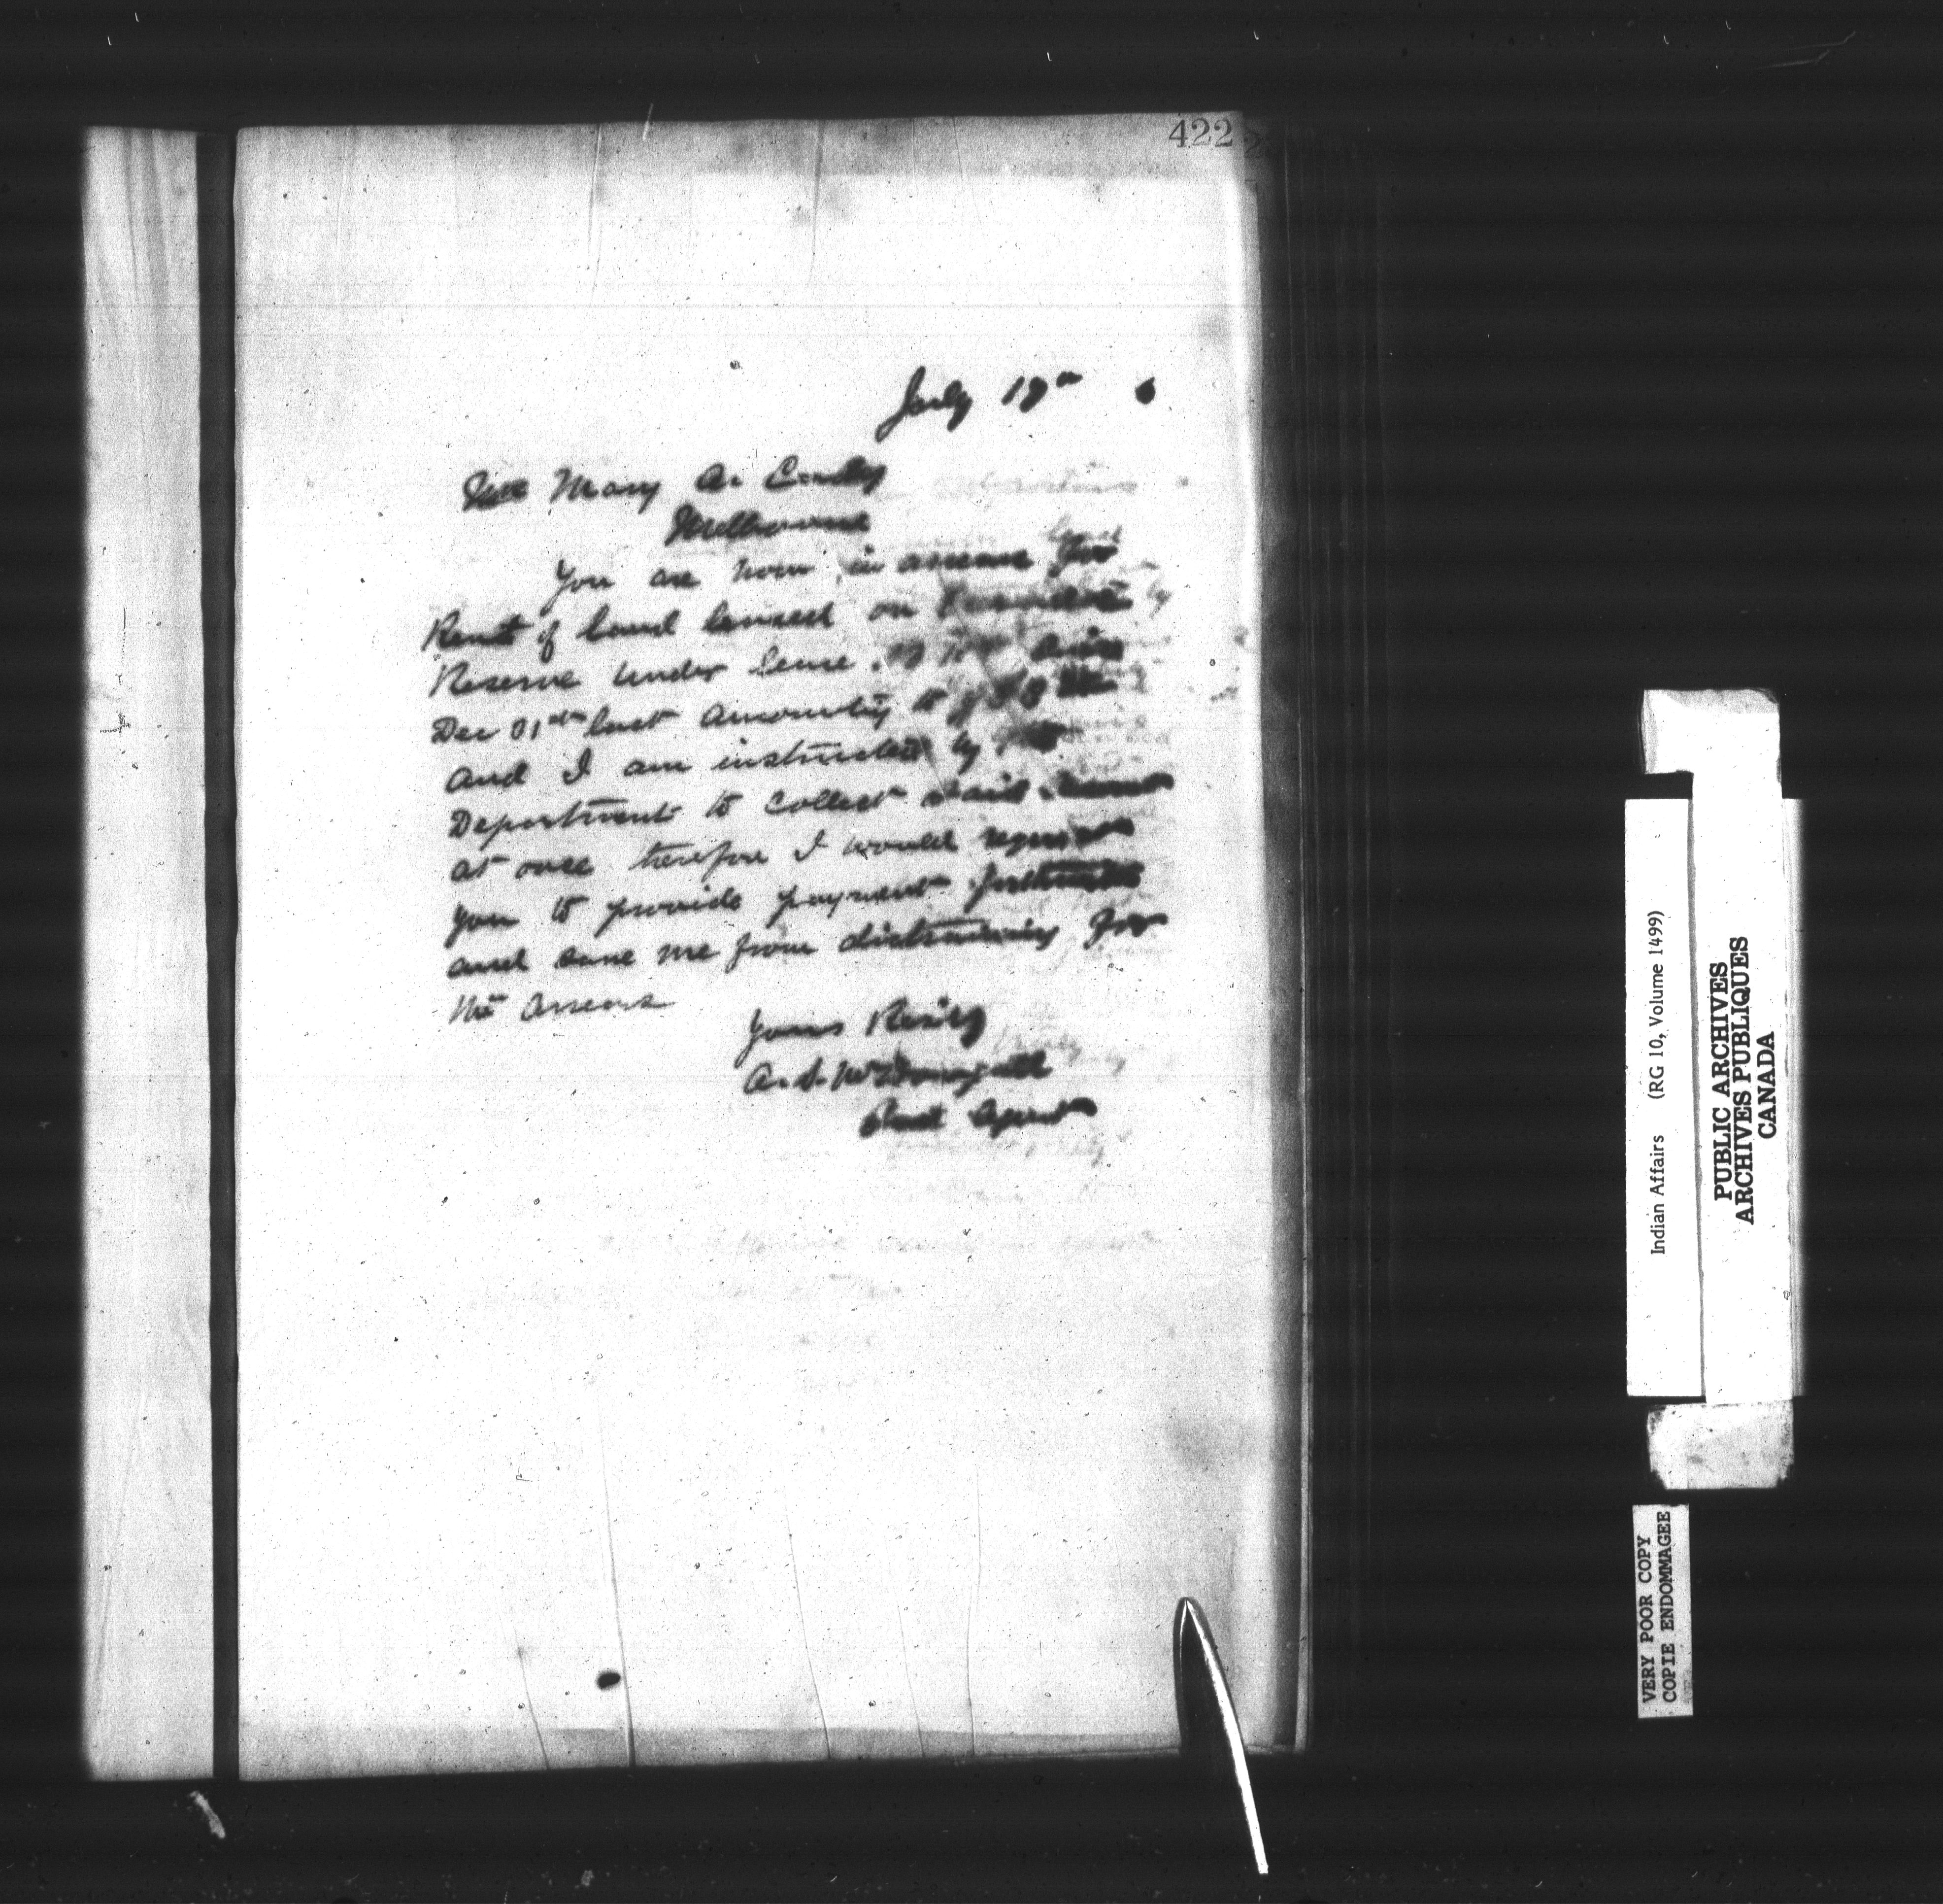 422
July 19th
Mrs Mary A.
Melbourne
You are now in arrears for
Rent of land leased on
Reserve under lease
Dec 31st last amounting to
and I am instructed by the
Department to collect said
at once therefore I would request
you to provide payment forthwith
and save me from distraining for
the arrears
Yours
A. S. McDougall
Agent
Indian Affairs (RG 10, Volume 1499)
PUBLIC ARCHIVES
ARCHIVES PUBLIQUES
CANADA
VERY POOR COPY
COPIE ENDOMMAGEE